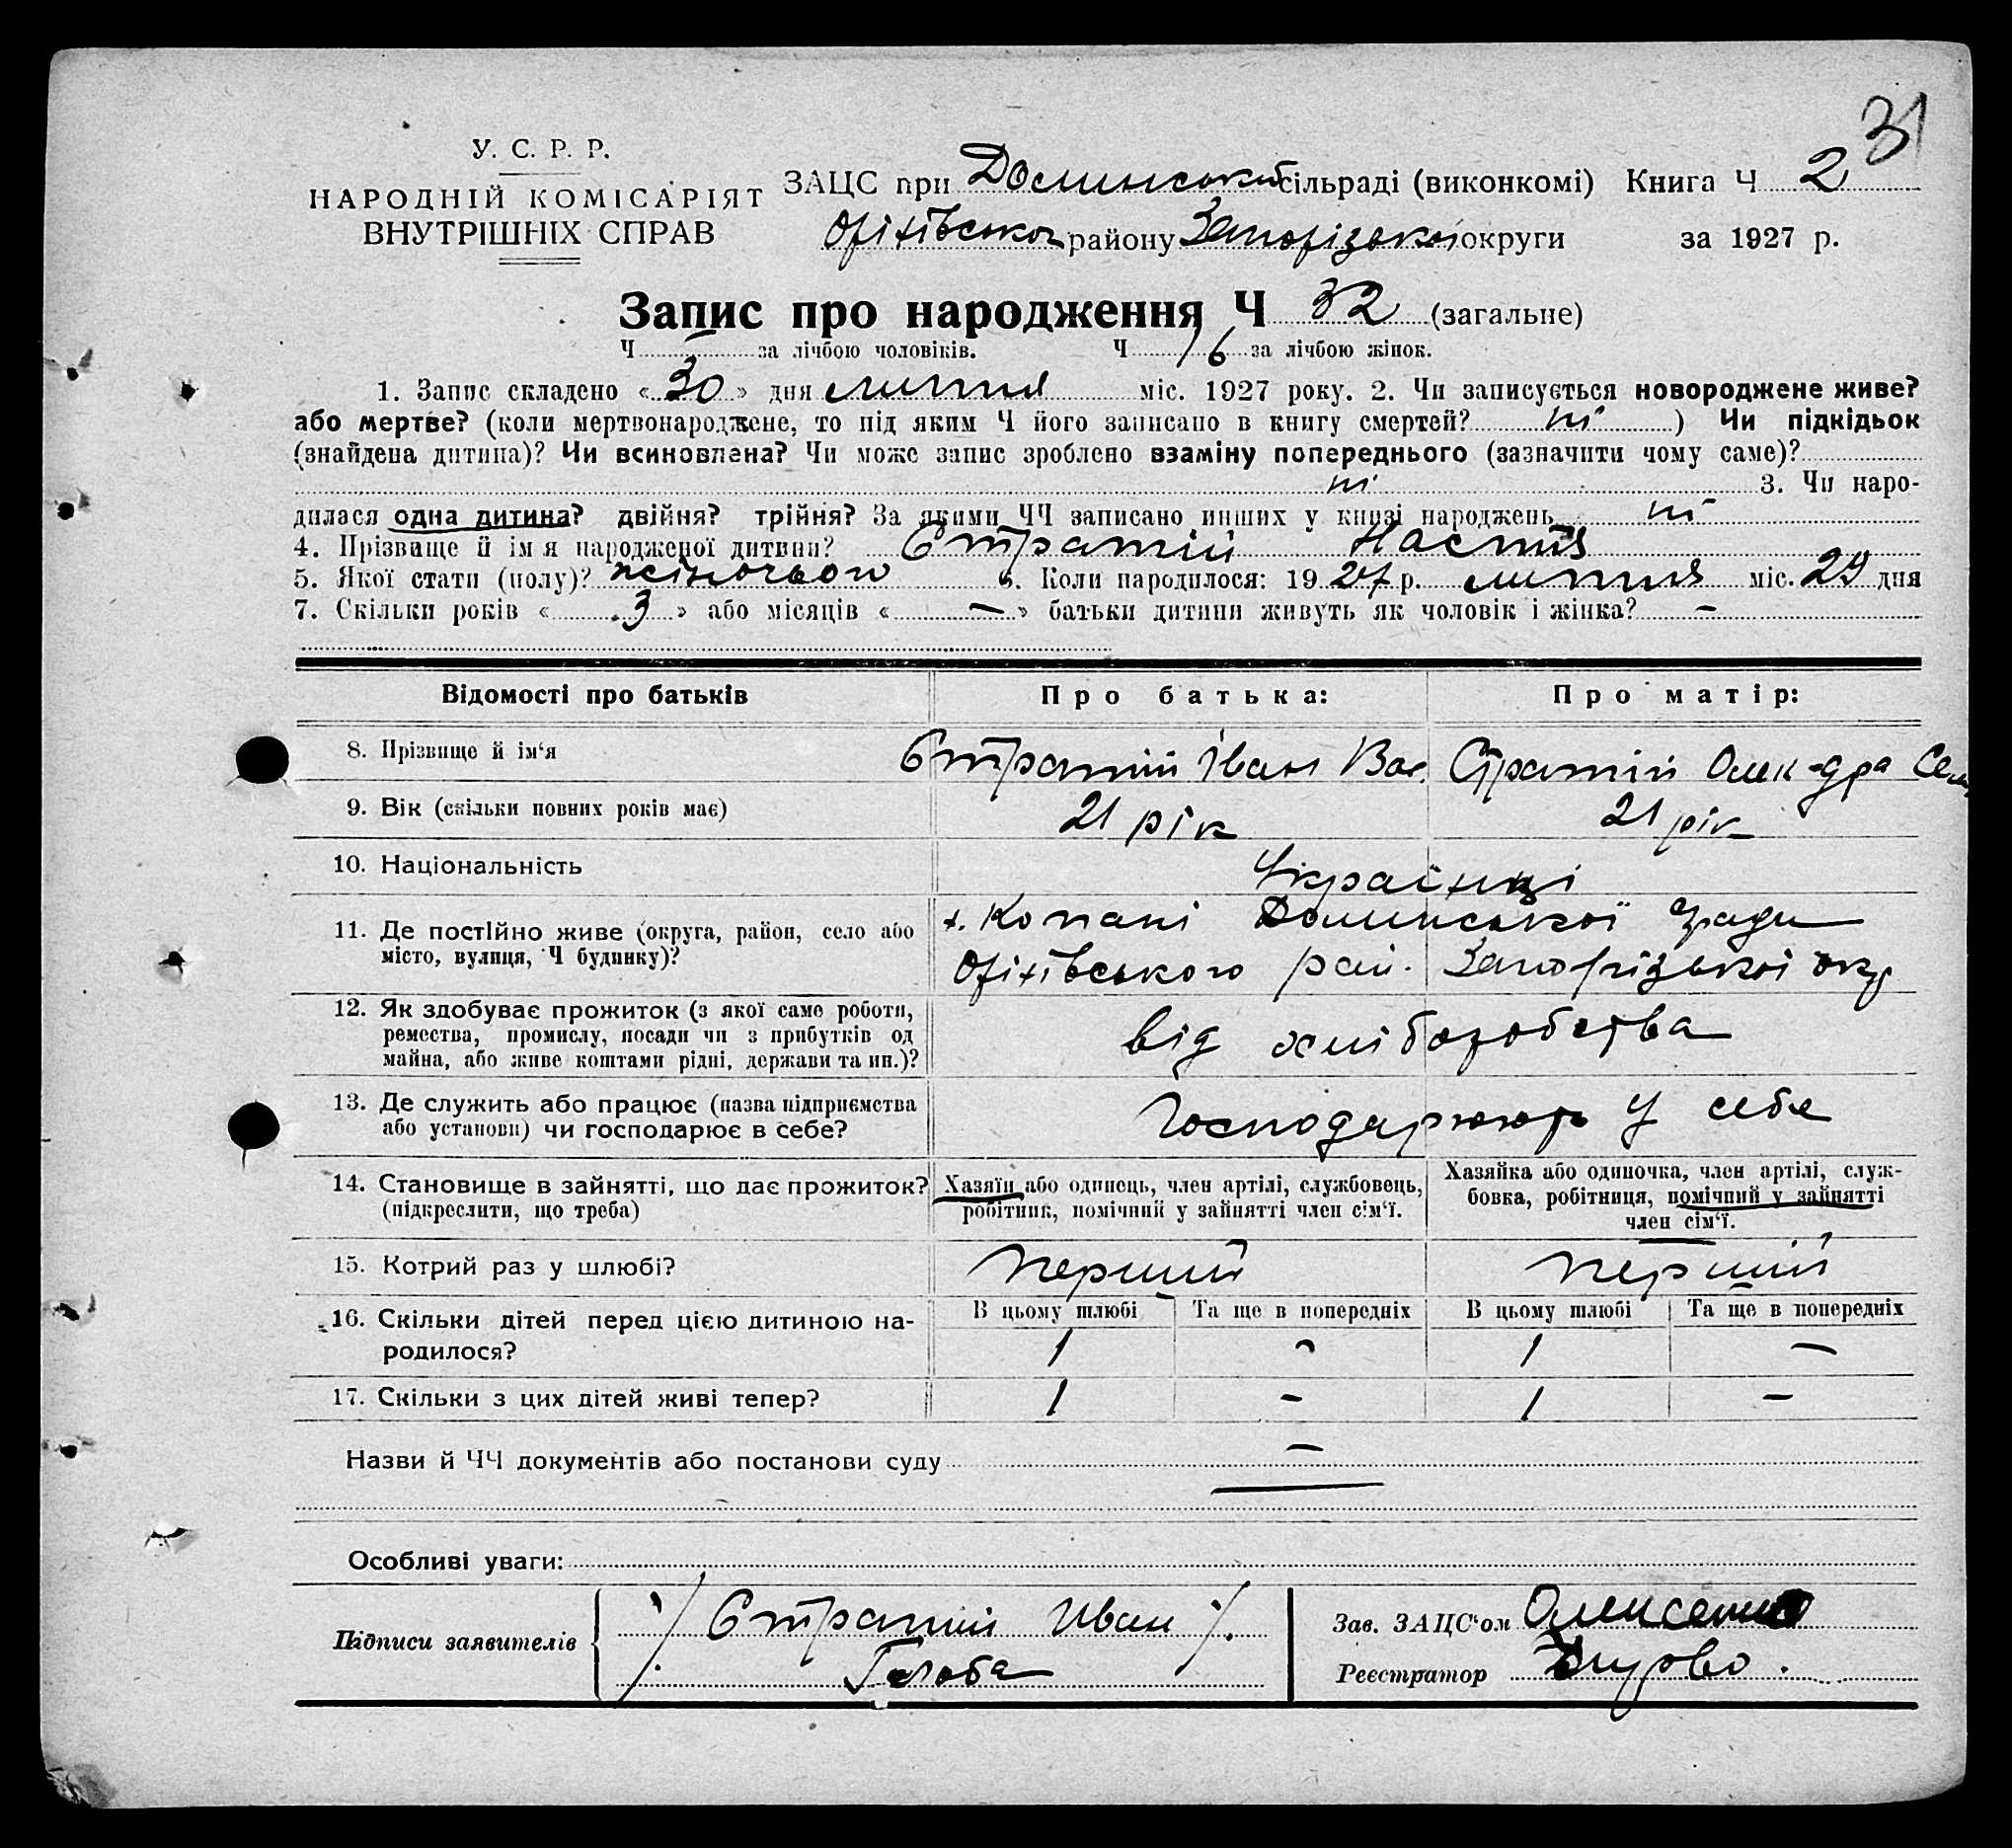 31
У. С. Р. Р.
НАРОДНІЙ КОМІСАРІЯТ
ВНУТРІШНІХ СПРАВ
ЗАЦС при Долинській сільраді (виконкомі) Книга Ч 2
Оріхівського району Запорізької округи за 1927 р.
Запис про народження Ч 32 (загальне)
Ч — за лічбою чоловіків. Ч 16 за лічбою жінок.
1. Запис складено «30» дня липня міс. 1927 року. 2. Чи записується новороджене живе?
або мертве? (коли мертвонароджене, то під яким Ч його записано в книгу смертей? ні ) Чи підкідьок
(знайдена дитина)? Чи всиновлена? Чи може запис зроблено взаміну попереднього (зазначити чому саме)?
ні 3. Чи наро-
дилася одна дитина? двійня? трійня? За якими ЧЧ записано инших у книзі народжень ні
4. Прізвище й ім'я народженої дитини? Стратій Настя
5. Якої стати (полу)? жіночього 6. Коли народилося: 1927 р. липня міс. 29 дня
7. Скільки років «3» або місяців «—» батьки дитини живуть як чоловік і жінка? —
Відомості про батьків Про батька: Про матір:
8. Прізвище й ім'я Стратій Іван Вас. Стратій Олек-дра Сем
9. Вік (скільки повних років має) 21 рік 21 рік
10. Національність Українці
11. Де постійно живе (округа, район, село або
місто, вулиця, Ч будинку)?
х. Копані Долинської с/ради
Оріхівського рай. Запорізької окр
12. Як здобуває прожиток (з якої саме роботи,
ремества, промислу, посади чи з прибутків од
майна, або живе коштами рідні, держави та ин.)?
від хліборобства
13. Де служить або працює (назва підприємства
або установи) чи господарює в себе?
Господарюють у себе
14. Становище в зайнятті, що дає прожиток?
(підкреслити, що треба)
Хазяїн або одинець, член артілі, службовець,
робітник, помічний у зайнятті член сім'ї.
Хазяйка або одиночка, член артілі, служ-
бовка, робітниця, помічний у зайнятті
член сім'ї.
15. Котрий раз у шлюбі? перший перший
16. Скільки дітей перед цією дитиною на-
родилося?
В цьому шлюбі Та ще в попередніх В цьому шлюбі Та ще в попередніх
1 - 1 —
17. Скільки з цих дітей живі тепер? 1 - 1 —
Назви й ЧЧ документів або постанови суду —
Особливі уваги:
Підписи заявителів
Стратій Иван
Голоба
Зав. ЗАЦС'ом
Реєстратор